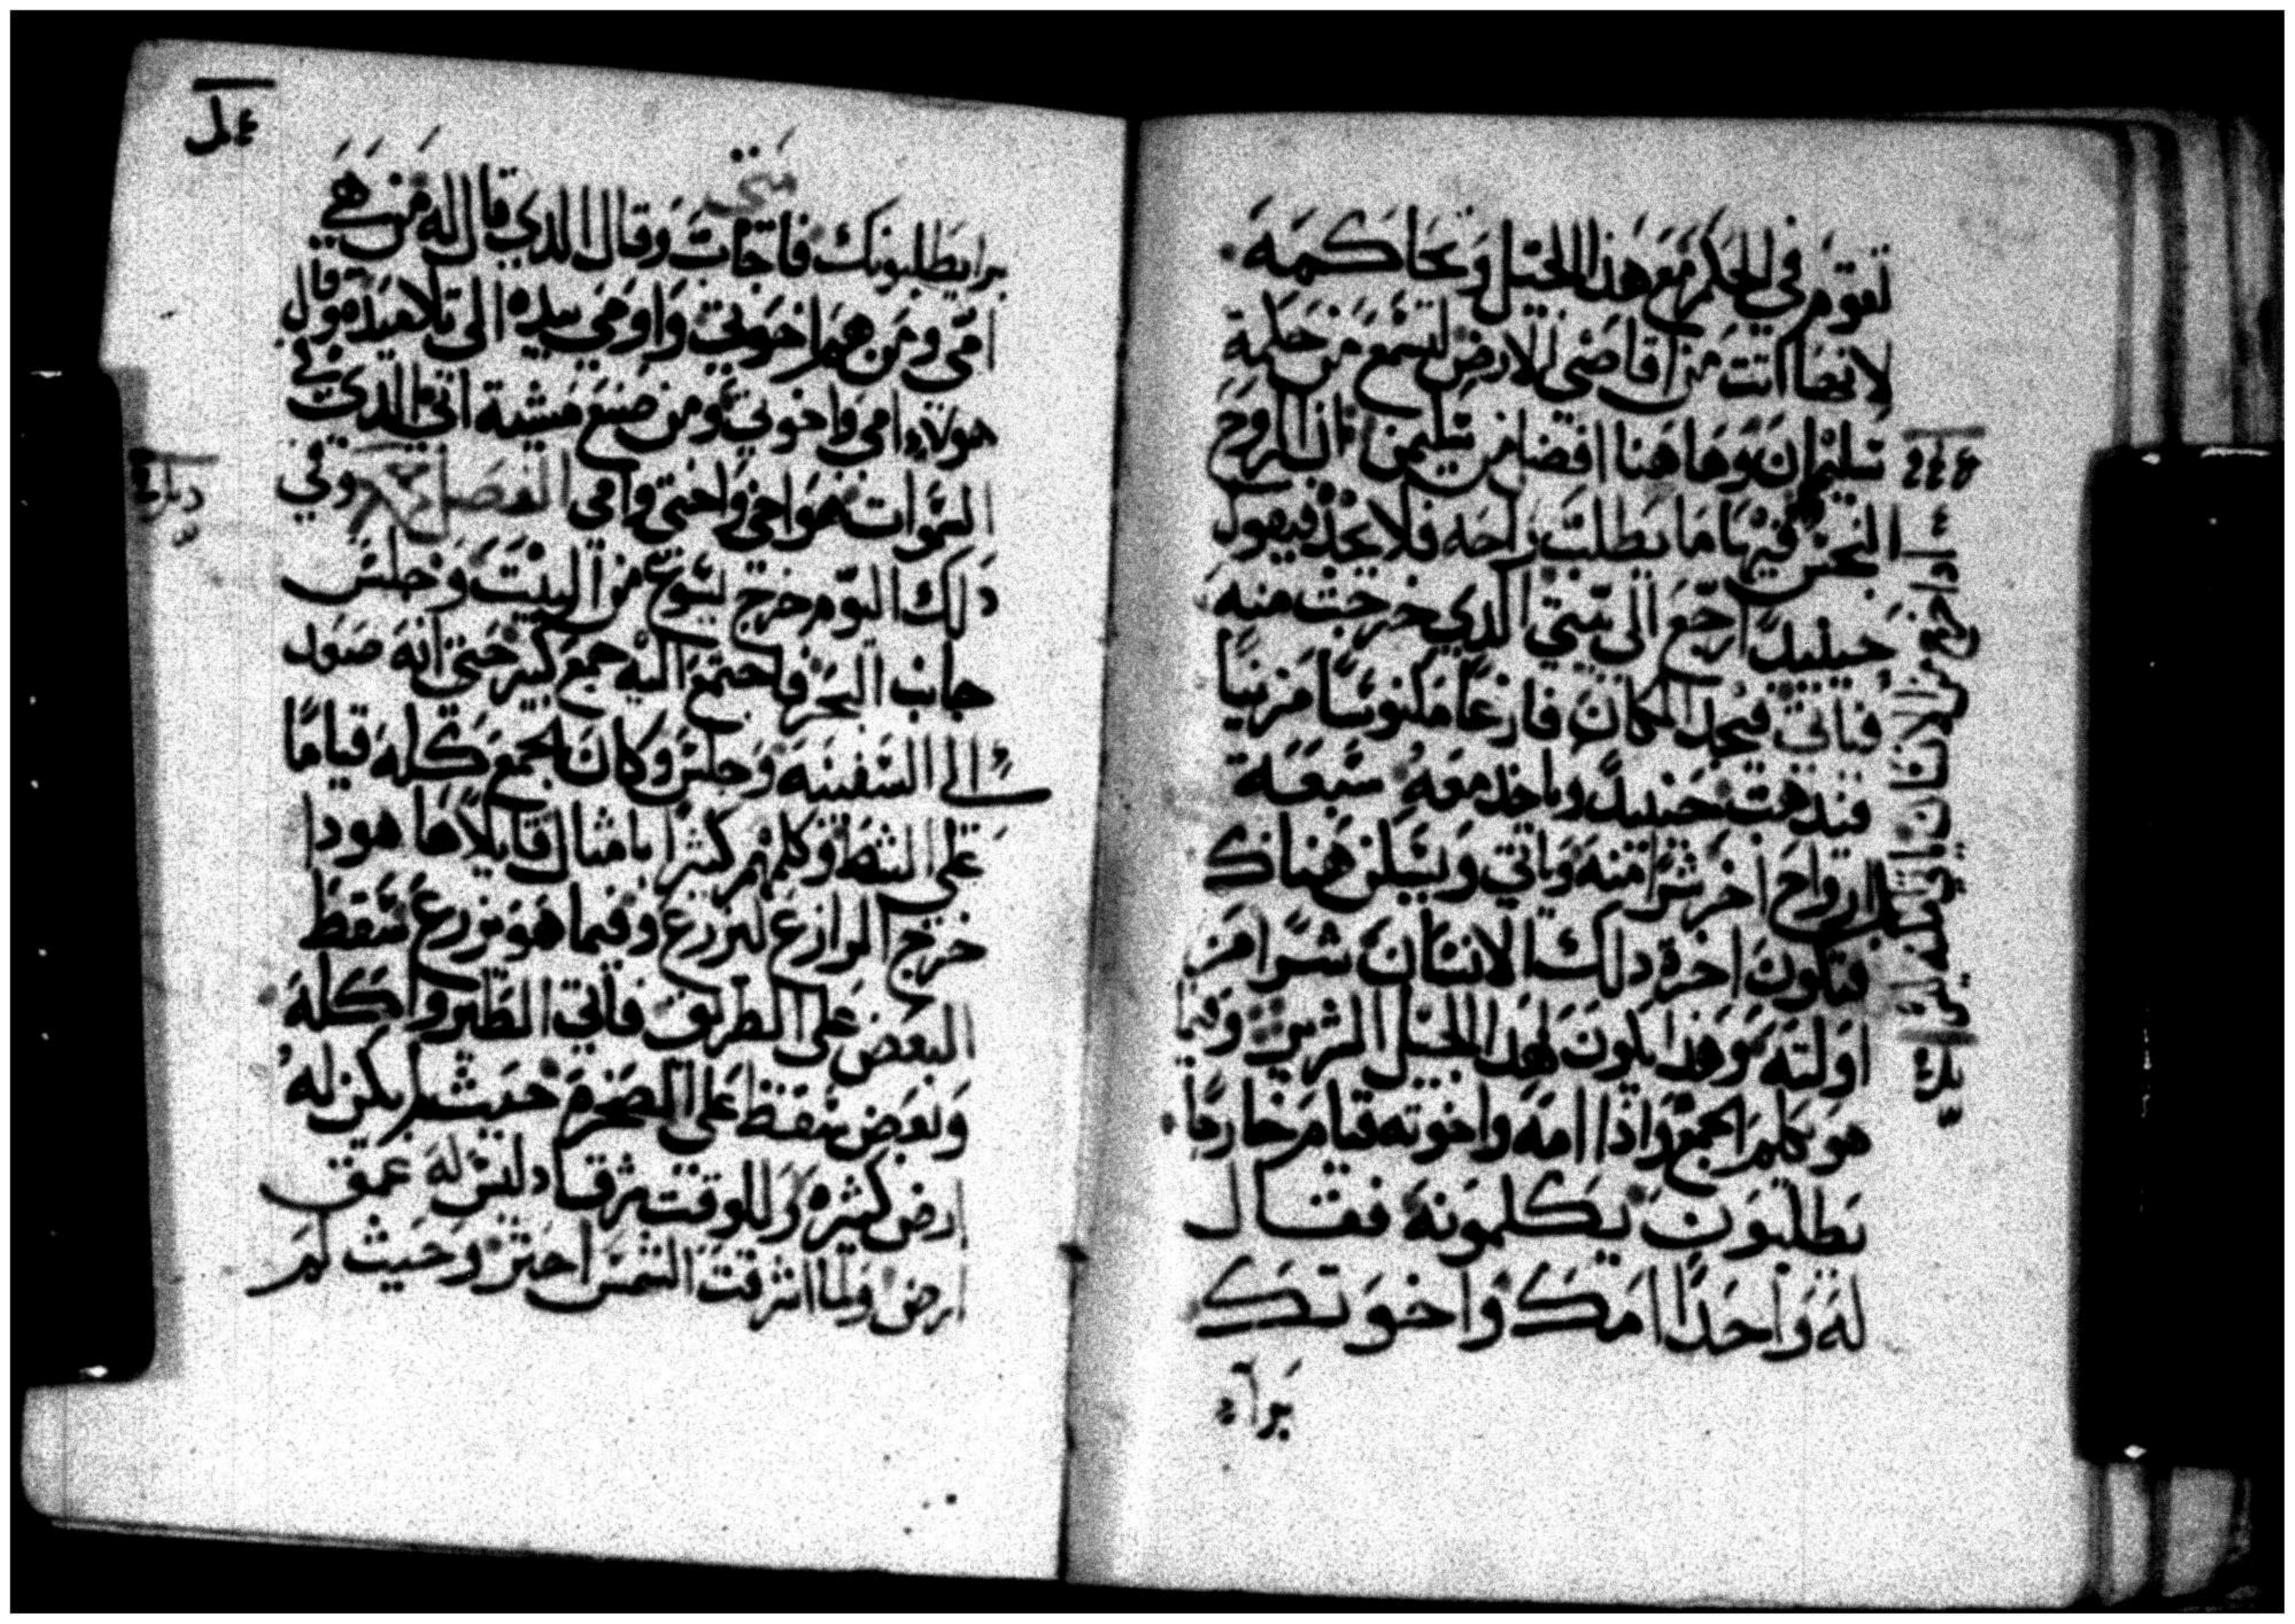 تقوم في الحكم مع هذا الجيل وتحاكمه
لانها اتت من اقاصي الارض لتسمع من حكمة
سليمان وهاهنا افضل من سليمن ان الروح
النجس
فيها ما يطلب راحه فلا يجد فيقول
حينيدً ارجع الى بيتي الدي خرجت منه
فياتي فيجد المكان فارغاً مكنوسًا مزينًا
فيدهب حينيدً وياخد معه سبعة
ارواح اخر شرًا منه وياتي ويسكن هناك
فتكون اخرة دلك الانسان شرًا من
اولته وهدا يكون لهدا الجيل الشرير وفيما
هو يكلم الجمع وادا امه واخوته قيام خارجًا
يطلبون يكلمونه فقال
له واحدًا امك واخوتك
برا
متى
برا يطلبونك فاجاب وقال الدي قال له من هي
امي ومن هم اخوتي واومي بيده الى تلاميده وقال
هولاء امي واخوتي ومن صنع مشية ابي الدي في
السموات هو اخي واختي وامي الفصل وفي
دلك اليوم خرج يسوع من البيت وجلس
جانب البحر فاجتمع اليه جمع كبير حتى انه صعد
الى السفينه وجلس وكان الجمع كله قيامًا
على الشط وكلمهم كثيرًا بامثال قايلاً ها هودا
خرج الزارع ليزرع وفيما هو يزرع سقط
البعض على الطريق فاتي الطير واكله
وبعض سقط على الصخرة حيث لم يكن له
ارض كثيره وللوقت شرق اد ليس له عمق
ارض ولما اشرقت الشمس احترق وحيث لم